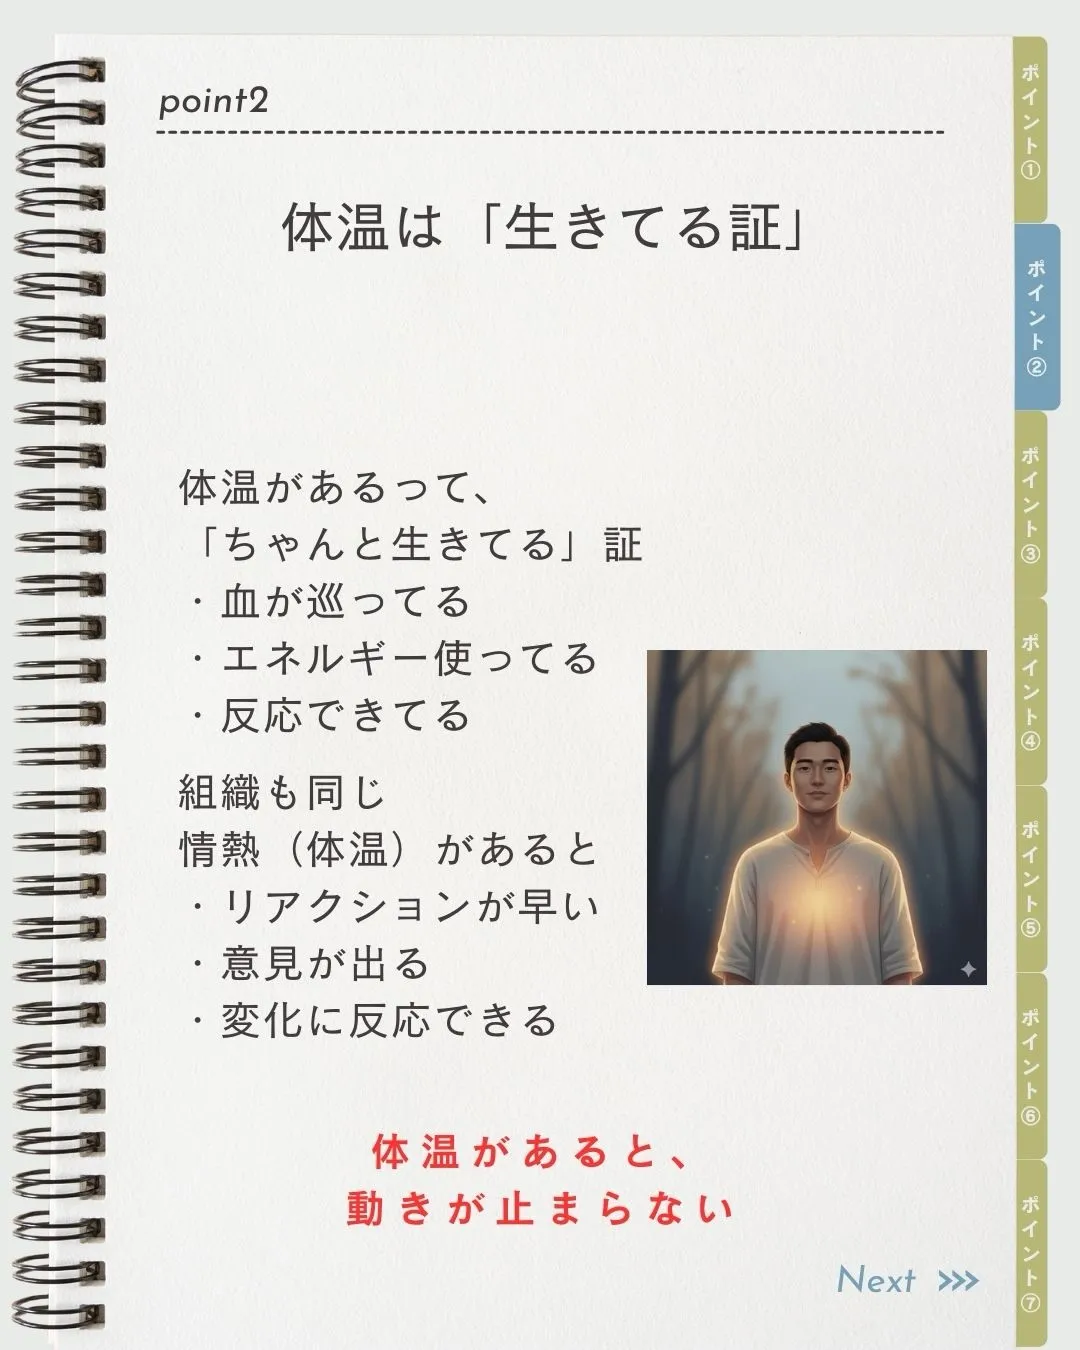 point2
体温は「生きてる証」
体温があるって、
「ちゃんと生きてる」証
・血が巡ってる
・エネルギー使ってる
・反応できてる
組織も同じ
情熱（体温）があると
・リアクションが早い
・意見が出る
・変化に反応できる
体温があると、
動きが止まらない
Next >>>
ポイント①
ポイント②
ポイント③
ポイント④
ポイント⑤
ポイント⑥
ポイント⑦